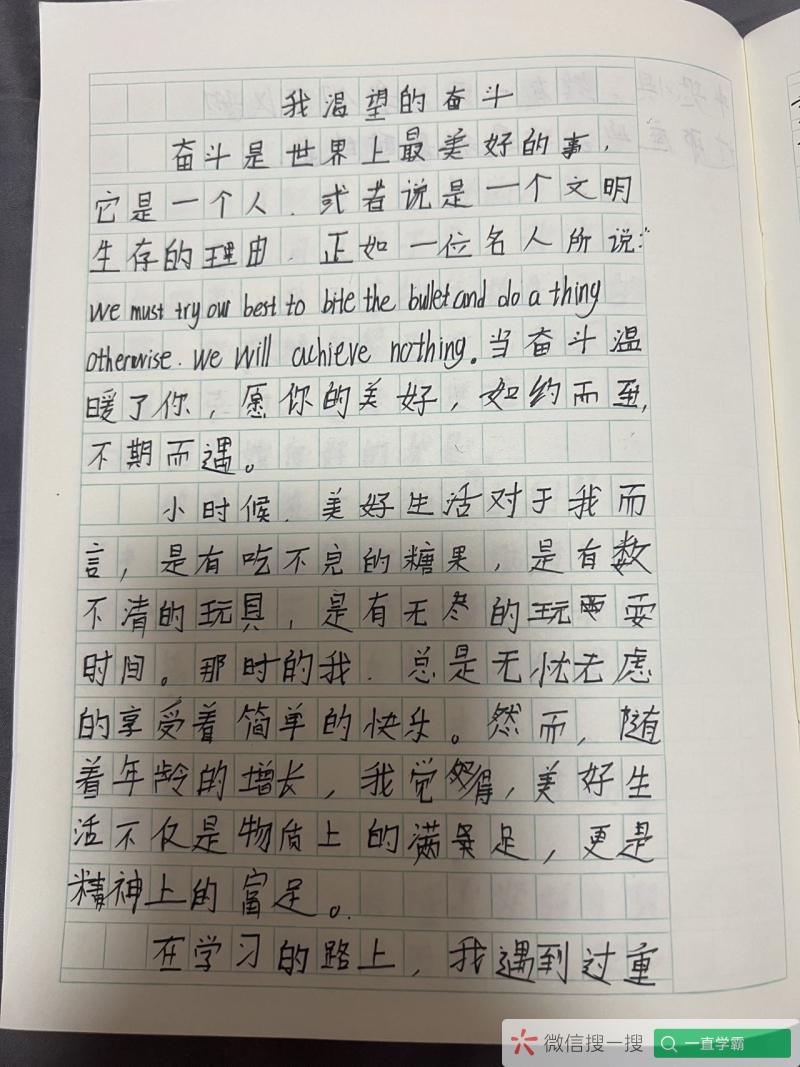 我渴望的奋斗
奋斗是世界上最美好的事,
它是一个人.或者说是一个文明
生存的理由.正如一位名人所说:"
we must try our best to bite the bullet and do a thing
otherwise. we will achieve nothing。当奋斗温
暖了你，愿你的美好，如约而至,
不期而遇。
小时候.美好生活对于我而
言，是有吃不完的糖果，是有数
不清的玩具，是有无尽的玩耍
时间。那时的我.总是无忧无虑
的享受着简单的快乐。然而，随
着年龄的增长，我觉得，美好生
活不仅是物质上的满足，更是
精神上的富足。
在学习的路上，我遇到过重
微信搜一搜
一直学霸